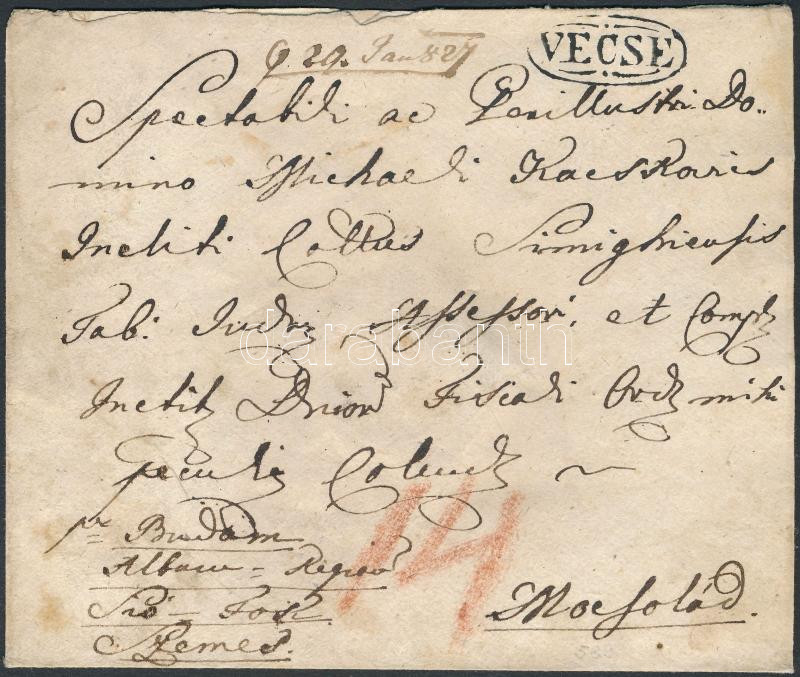 29. Jan 827
VECSE
Spectabili ac Perillustri Do-
mino Michaeli Kacskovics
Incliti Cottus Simighiensis
Tab. Judrz Assessori, et Complz
Inclitz Dnior Fiscali Ordz mihi
peculz Colendz ~
pr Budam
Albam - Regiam
Sió - Fok
Szemes.
14
Mocsolád.
darabanth